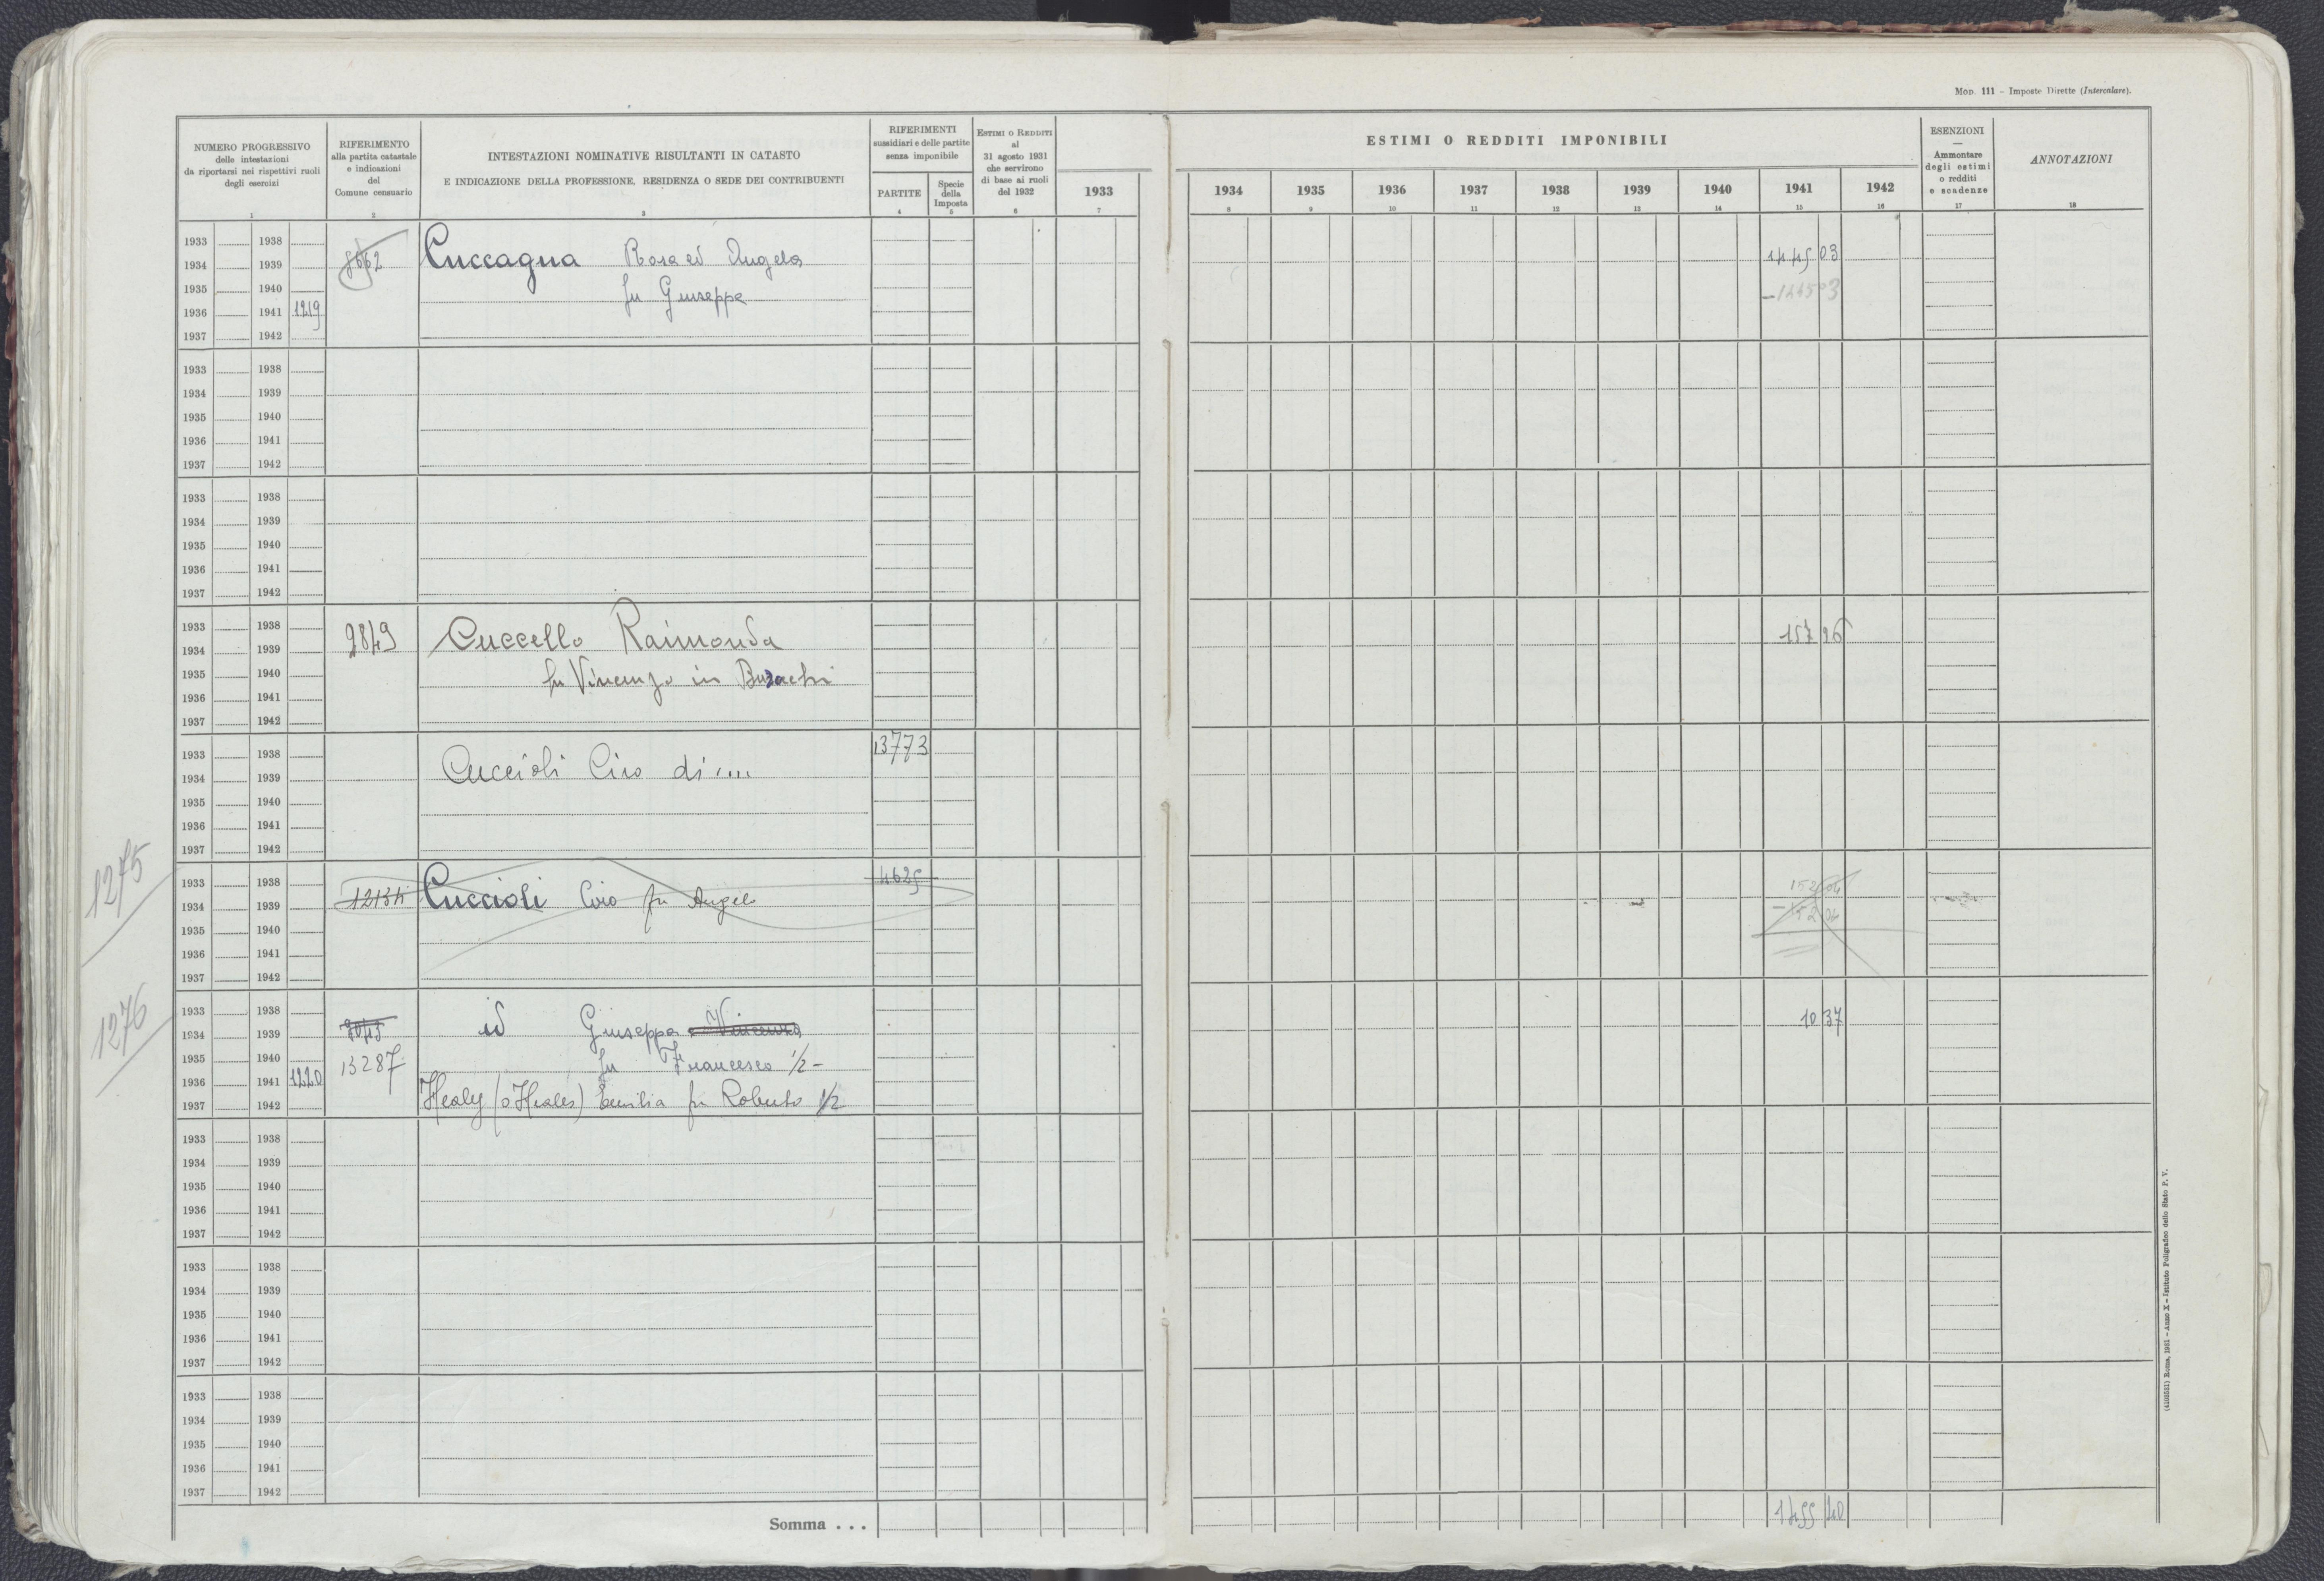 Mod. 111 – Imposte Dirette (Intercalare).
NUMERO PROGRESSIVO
delle intestazioni
da riportarsi nei rispettivi ruoli
degli esercizi
1
RIFERIMENTO
alla partita catastale
e indicazioni
del
Comune censuario
2
INTESTAZIONI NOMINATIVE RISULTANTI IN CATASTO
E INDICAZIONE DELLA PROFESSIONE, RESIDENZA O SEDE DEI CONTRIBUENTI
3
RIFERIMENTI
sussidiari e delle partite
senza imponibile
PARTITE
4
Specie
della
Imposta
5
Estimi o Redditi
al
31 agosto 1931
che servirono
di base ai ruoli
del 1932
6
1933
7
ESTIMI O REDDITI IMPONIBILI
1934 1935 1936 1937 1938 1939 1940 1941 1942
8 9 10 11 12 13 14 15 16
ESENZIONI
—
Ammontare
degli estimi
o redditi
e scadenze
17
ANNOTAZIONI
18
1933 1938
1934 1939 Cuccagna Rosa ed Angela 1445 03
1935 1940 fu Giuseppe -1445 03
1936 1941 1219
1937 1942
1933 1938
1934 1939
1935 1940
1936 1941
1937 1942
1933 1938
1934 1939
1935 1940
1936 1941
1937 1942
1933 1938
1934 1939 9849 Cuccello Raimonda 157 96
1935 1940 fu Vincenzo in Buzachi
1936 1941
1937 1942
1933 1938 13773
1934 1939 Cuccioli Ciro di....
1935 1940
1936 1941
1937 1942
1275
1933 1938 4625
1934 1939 12134 Cuccioli Ciro fu Angelo 152 04
1935 1940 -152 04
1936 1941
1937 1942
1276
1933 1938
1934 1939 id Giuseppe e Vincenzo 10 37
1935 1940 13287 fu Francesco 1/2 -
1936 1941 1220
1937 1942 Healy (o Heales) Emilia fu Roberto 1/2
1933 1938
1934 1939
1935 1940
1936 1941
1937 1942
1933 1938
1934 1939
1935 1940
1936 1941
1937 1942
1933 1938
1934 1939
1935 1940
1936 1941
1937 1942
Somma . . . 1455 40
(4103531) Roma, 1931 – Anno X – Istituto Poligrafico dello Stato P. V.